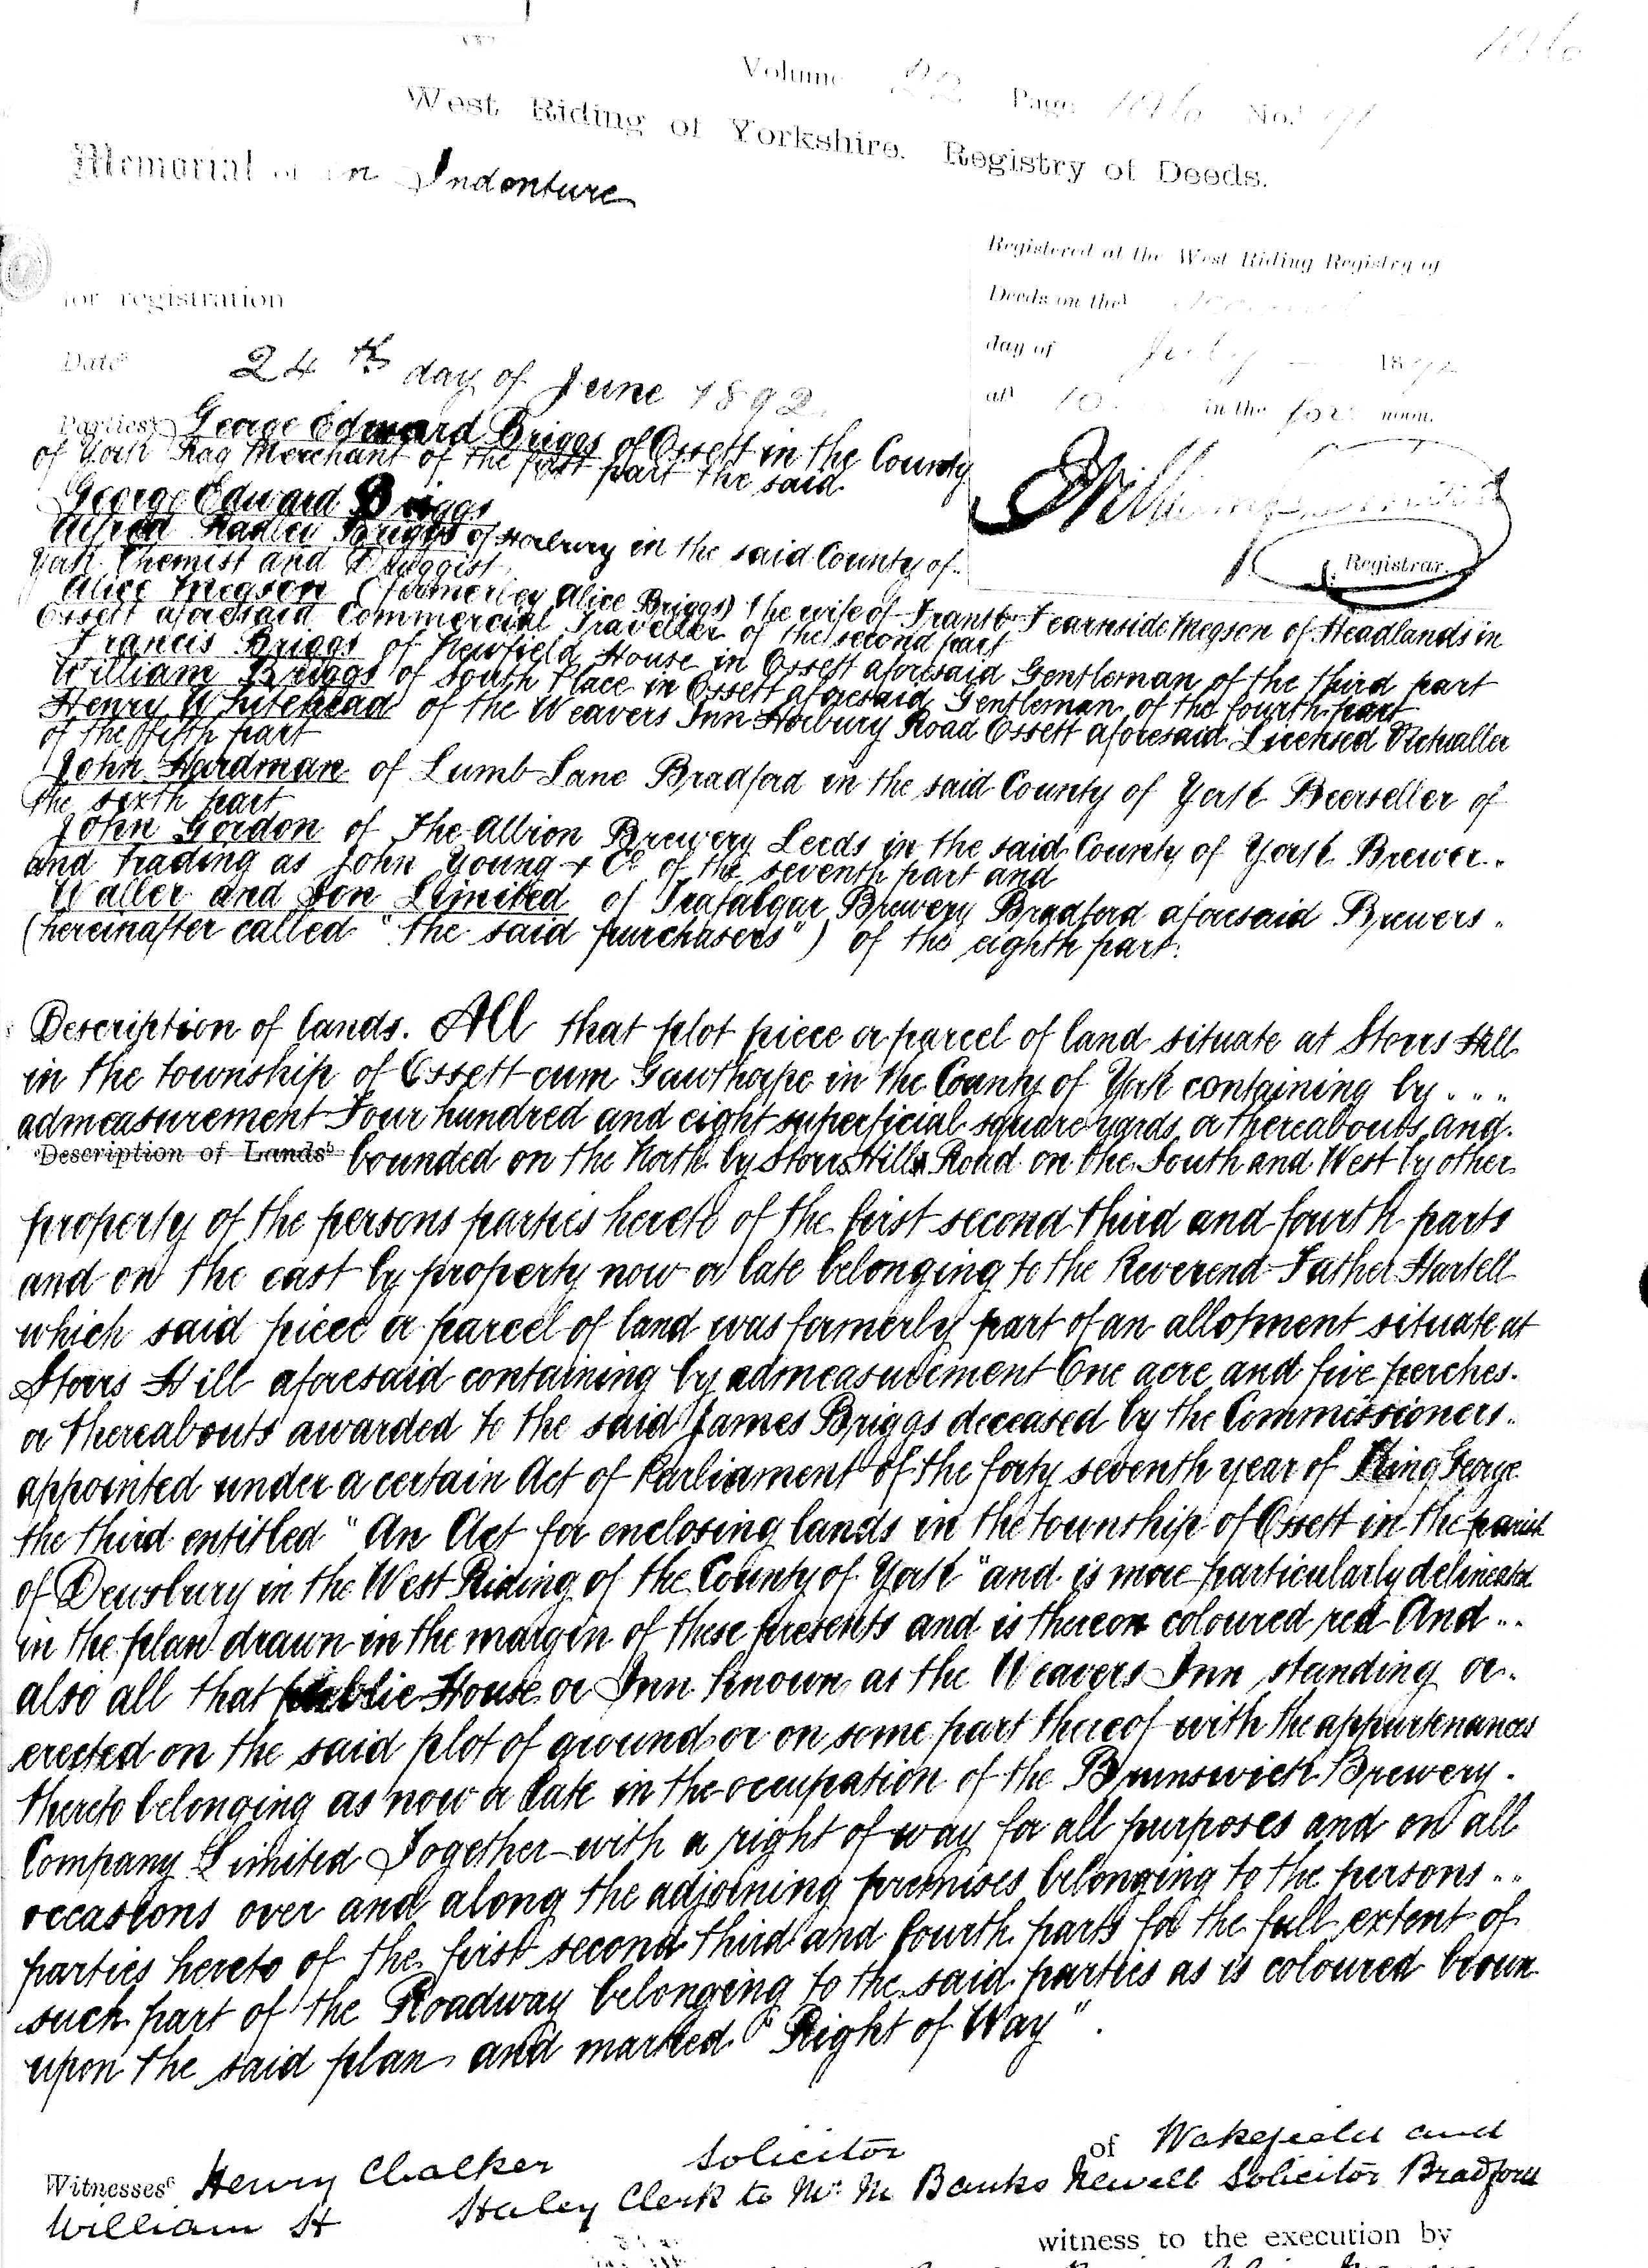 Volume 22 Page 1060 No.
West Riding of Yorkshire. Registry of Deeds.
Memorial of an Indenture
Registered at the West Riding Registry of
for registration
Deeds on the
day of July 1892
Date 24th day of June 1892
at 10 in the fore noon.
Parties George Edward Briggs of Ossett in the County
of York Rag Merchant of the first part the said
George Edward Briggs
Alfred Radley Briggs of Horbury in the said County of
York Chemist and Druggist
Registrar.
Alice Megson (formerley Alice Briggs) the wife of Frank Fearnside Megson of Headlands in
Ossett aforesaid Commercial Traveller of the second part
Francis Briggs of Newfield House in Ossett aforesaid Gentleman of the third part
William Briggs of South Place in Ossett aforesaid Gentleman of the fourth part
Henry Whitehead of the Weavers Inn Horbury Road Ossett aforesaid Licensed Victualler
of the fifth part
John Hardman of Lumb Lane Bradford in the said County of York Beerseller of
the sixth part
John Gordon of The Albion Brewery Leeds in the said County of York Brewer
and trading as John Young & Co of the seventh part and
Waller and Son Limited of Trafalgar Brewery Bradford aforesaid Brewers
(hereinafter called "the said purchasers") of the eighth part.
Description of lands. All that plot piece or parcel of land situate at Storrs Hill
in the township of Ossett cum Gawthorpe in the County of York containing by ....
admeasurement Four hundred and eight superficial square yards or thereabouts and
Description of Lands bounded on the North by Storrs Hill Road on the South and West by other
property of the persons parties hereto of the first second third and fourth parts
and on the east by property now or late belonging to the Reverend Father Hartell
which said piece or parcel of land was formerly part of an allotment situate at
Storrs Hill aforesaid containing by admeasurement One acre and five perches
or thereabouts awarded to the said James Briggs deceased by the Commissioners
appointed under a certain Act of Parliament of the forty seventh year of King George
the third entitled "An Act for enclosing lands in the township of Ossett in the parish
of Dewsbury in the West Riding of the County of York" and is more particularly delineated
in the plan drawn in the margin of these presents and is thereon coloured red And ..
also all that public House or Inn known as the Weavers Inn standing or
erected on the said plot of ground or on some part thereof with the appurtenances
thereto belonging as now or late in the occupation of the Brunswick Brewery
Company Limited Together with a right of way for all purposes and on all
occasions over and along the adjoining premises belonging to the persons ..
parties hereto of the first second third and fourth parts for the full extent of
such part of the Roadway belonging to the said parties as is coloured brown
upon the said plan and marked "Right of Way".
Witnesses Henry Chalker Solicitor of Wakefield and
William H Haley Clerk to Mr M Banks Newell Solicitor Bradford
witness to the execution by